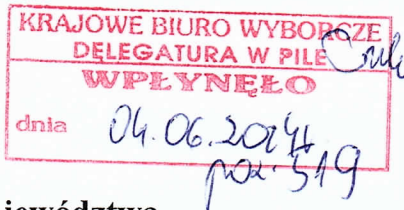 KRAJOWE BIURO WYBORCZE
DELEGATURA W PILE
WPŁYNĘŁO
dnia 04.06.2024
poz. 519